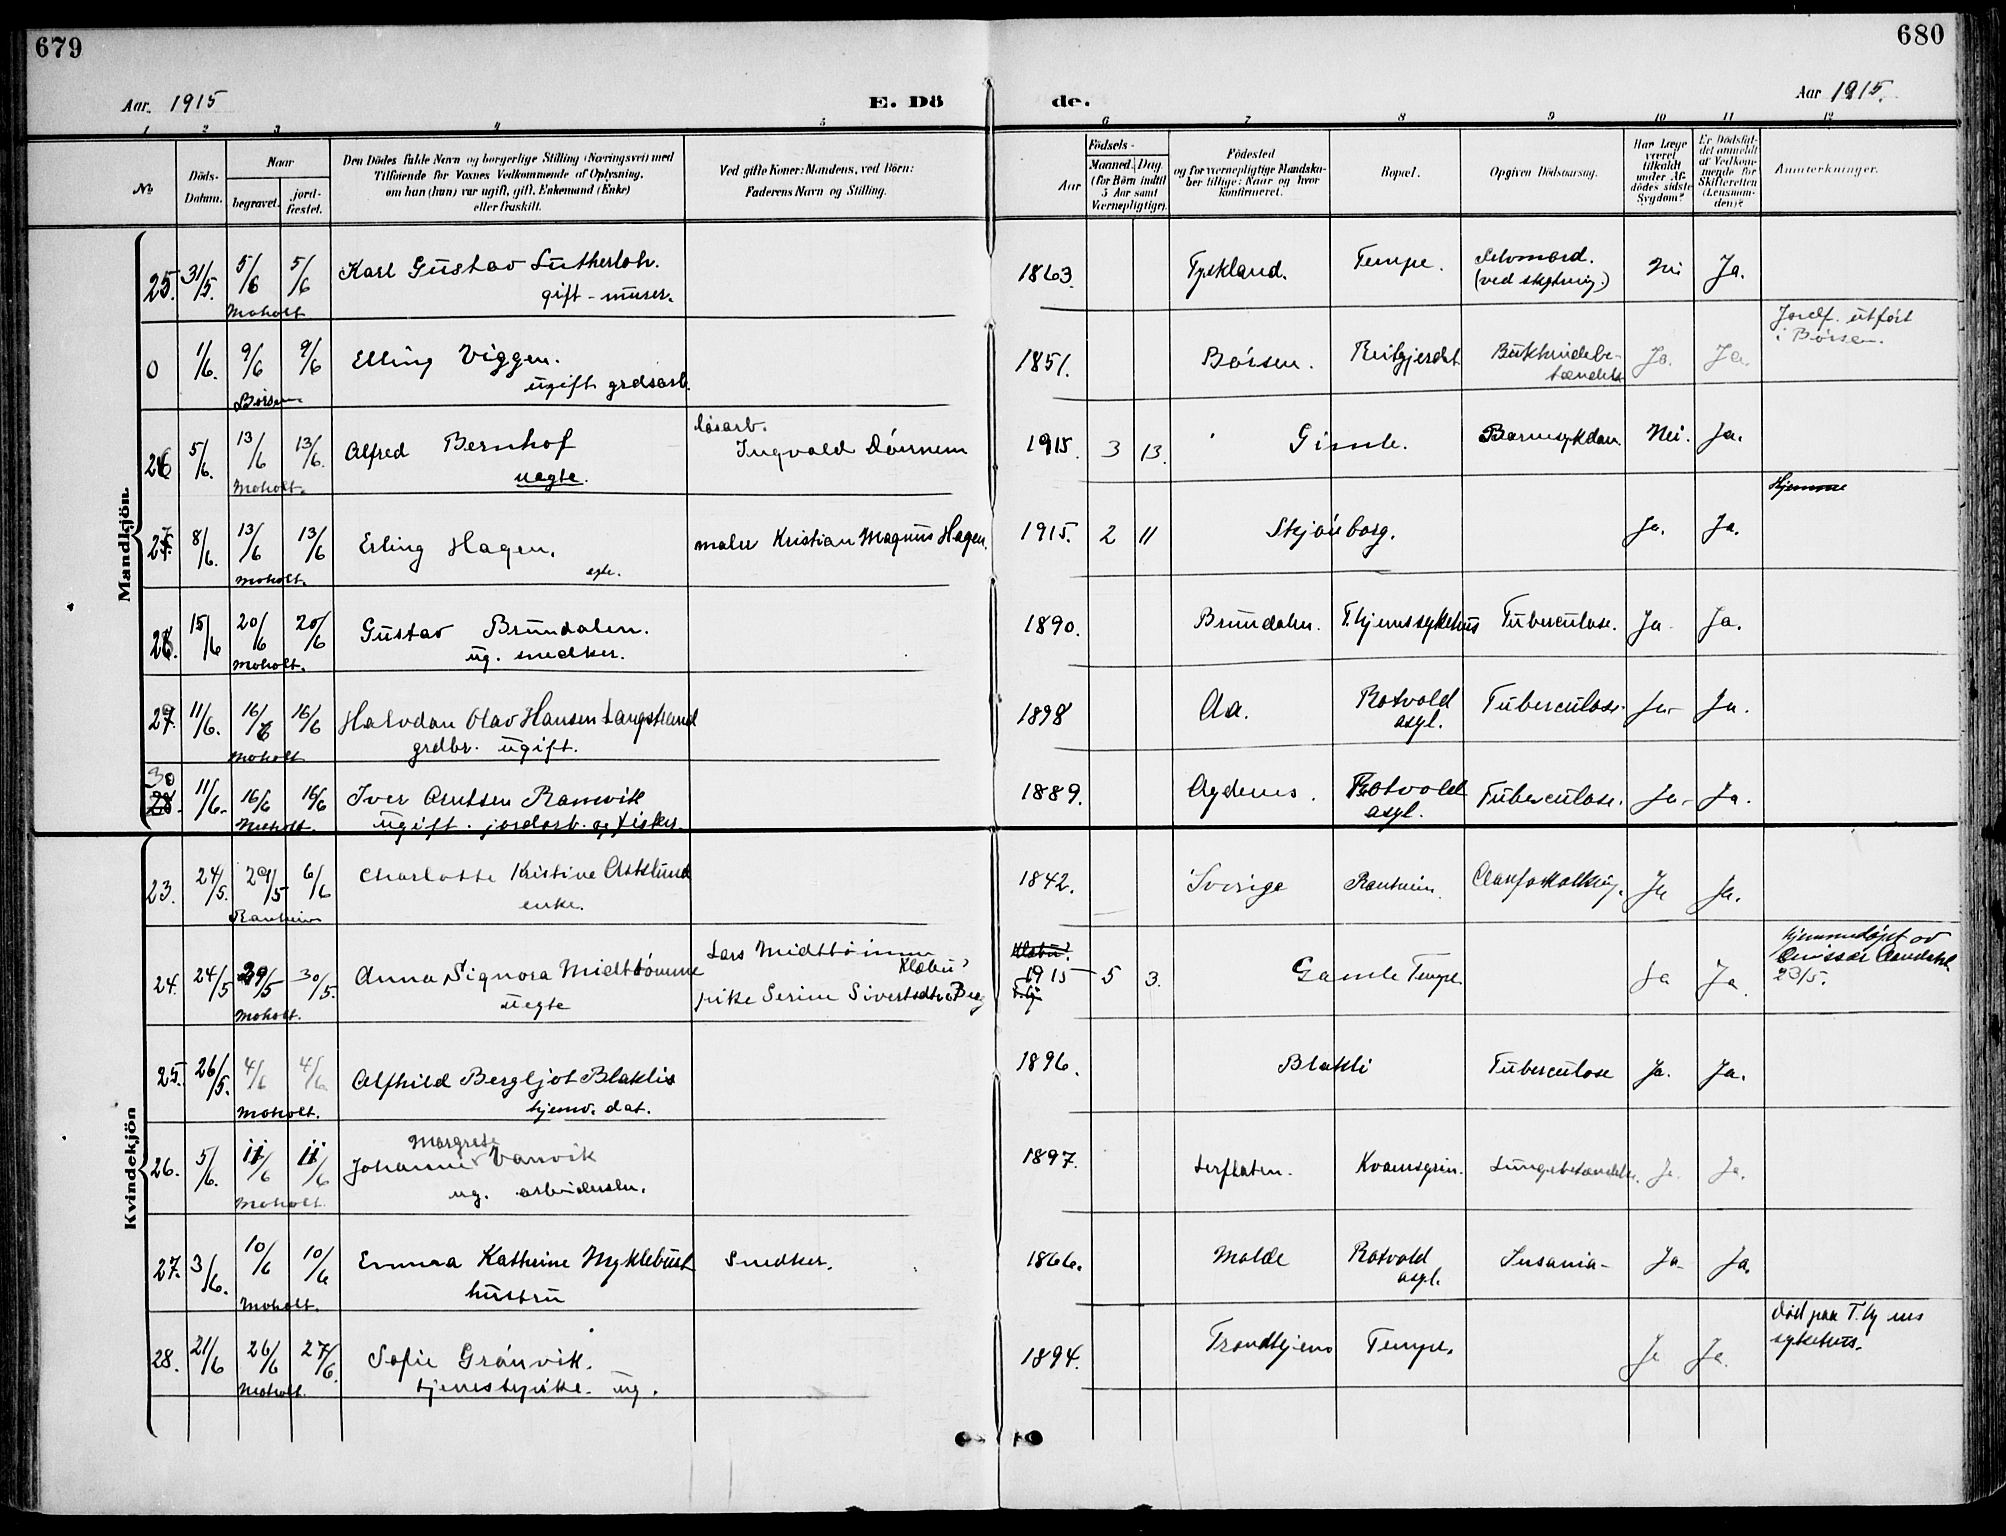 679
680
Aar. 1915
E. Dö
de.
Aar 1915.
1 2 3 4 5 6 7 8 9 10 11 12
No
Döds-
Datum.
Naar
begravet.
jord-
fæstet.
Den Dödes fulde Navn og borgerlige Stilling (Næringsvei) med
Tilföiende for Voxnes Vedkommende af Oplysning,
om han (hun) var ugift, gift, Enkemand (Enke)
eller fraskilt.
Ved gifte Koner: Mandens, ved Börn:
Faderens Navn og Stilling.
Födsels-
Aar
Maaned. Dag
(for Börn indtil
5 Aar samt
Værnepligtige).
Födested
og for værnepligtige Mandska-
ber tillige: Naar og hvor
konfirmeret.
Bopæl.
Opgiven Dödsaarsag.
Har Læge
været
tilkaldt
under Af-
dödes sidste
Sygdom?
Er Dödsfal-
det anmeldt
af Vedkom-
mende for
Skifteretten
(Lensman-
den)?
Anmærkninger.
Mandkjön.
25. 31/5. 5/6 5/6 Karl Gustav Lutherloh. 1863. Tyskland. Tempe. Selvmord. Nei Ja.
Moholt gift - murer. (ved skytning.)
0 1/6. 9/6 9/6 Elling Viggen. 1851. Børsen. Reitgjerdet Bukhindebe- Ja. Ja. Jordf. utført
Børsen ugift grdsarb. tændelse i Børsen.
26 5/6. 13/6 13/6. Alfred Bernhof løsarb. Ingvald Dørnem 1915. 3 13. Gimle. Barnesykdom. Nei. Ja.
Moholt. uegte.
27. 8/6. 13/6 13/6 Erling Hagen. maler Kristian Magnus Hagen. 1915. 2 11 Skjønborg. Ja. Ja. Hjemme
Moholt. egte.
28. 15/6 20/6 20/6 Gustav Brundalen. 1890. Brundalen. T.hjems sykehus Tuberculose. Ja. Ja.
Moholt. ug. snedker.
29. 11/6. 16/6 16/6 Halvdan Olav Hansen Langstrand 1898 Aa. Rotvold Tuberculose. Ja. Ja.
Moholt grdbr. ugift. asyl.
30
28. 11/6. 16/6 16/6 Iver Arntsen Ramvik 1889. Agdenes. Rotvold Tuberculose. Ja. Ja.
Moholt. ugift. jordarb. og fisker. asyl.
Kvindekjön
23. 24/5. 29/5 6/6 Charlotte Kristine Asklund 1842. Sverige Ranheim. Aareforkalkning. Ja Ja.
Ranheim enke.
24. 24/5 29/5 30/5. Anna Signora Midttømme Lars Midttømme Klæbu 1915 5 3. Gamle Tempe Ja Ja. hjemmedøpt av
Moholt. uegte pike Serine Sivertsdtr Berg 23/5.
25. 26/5. 4/6 4/6 Alfhild Bergljot Blaklis 1896. Blakli Tuberculose Ja. Ja.
Moholt. hjemv. dat.
26. 5/6. 11/6 11/6 Johanne Margrete Vanvik 1897. Lerflaten. Kvamsgrin. Lungebetændelse. Ja. Ja.
Moholt ug. arbeiderske.
27. 3/6. 10/6 10/6 Emma Kathrine Myklebust Snedker. 1866. Molde Rotvold Insania- Ja- Ja.
Moholt. hustru asyl.
28. 21/6 26/6 27/6. Sofie Grønvik. 1894. Trondhjem Tempe. Ja Ja. død paa T.hjems
Moholt. tjenestepike. ug. sykehus.